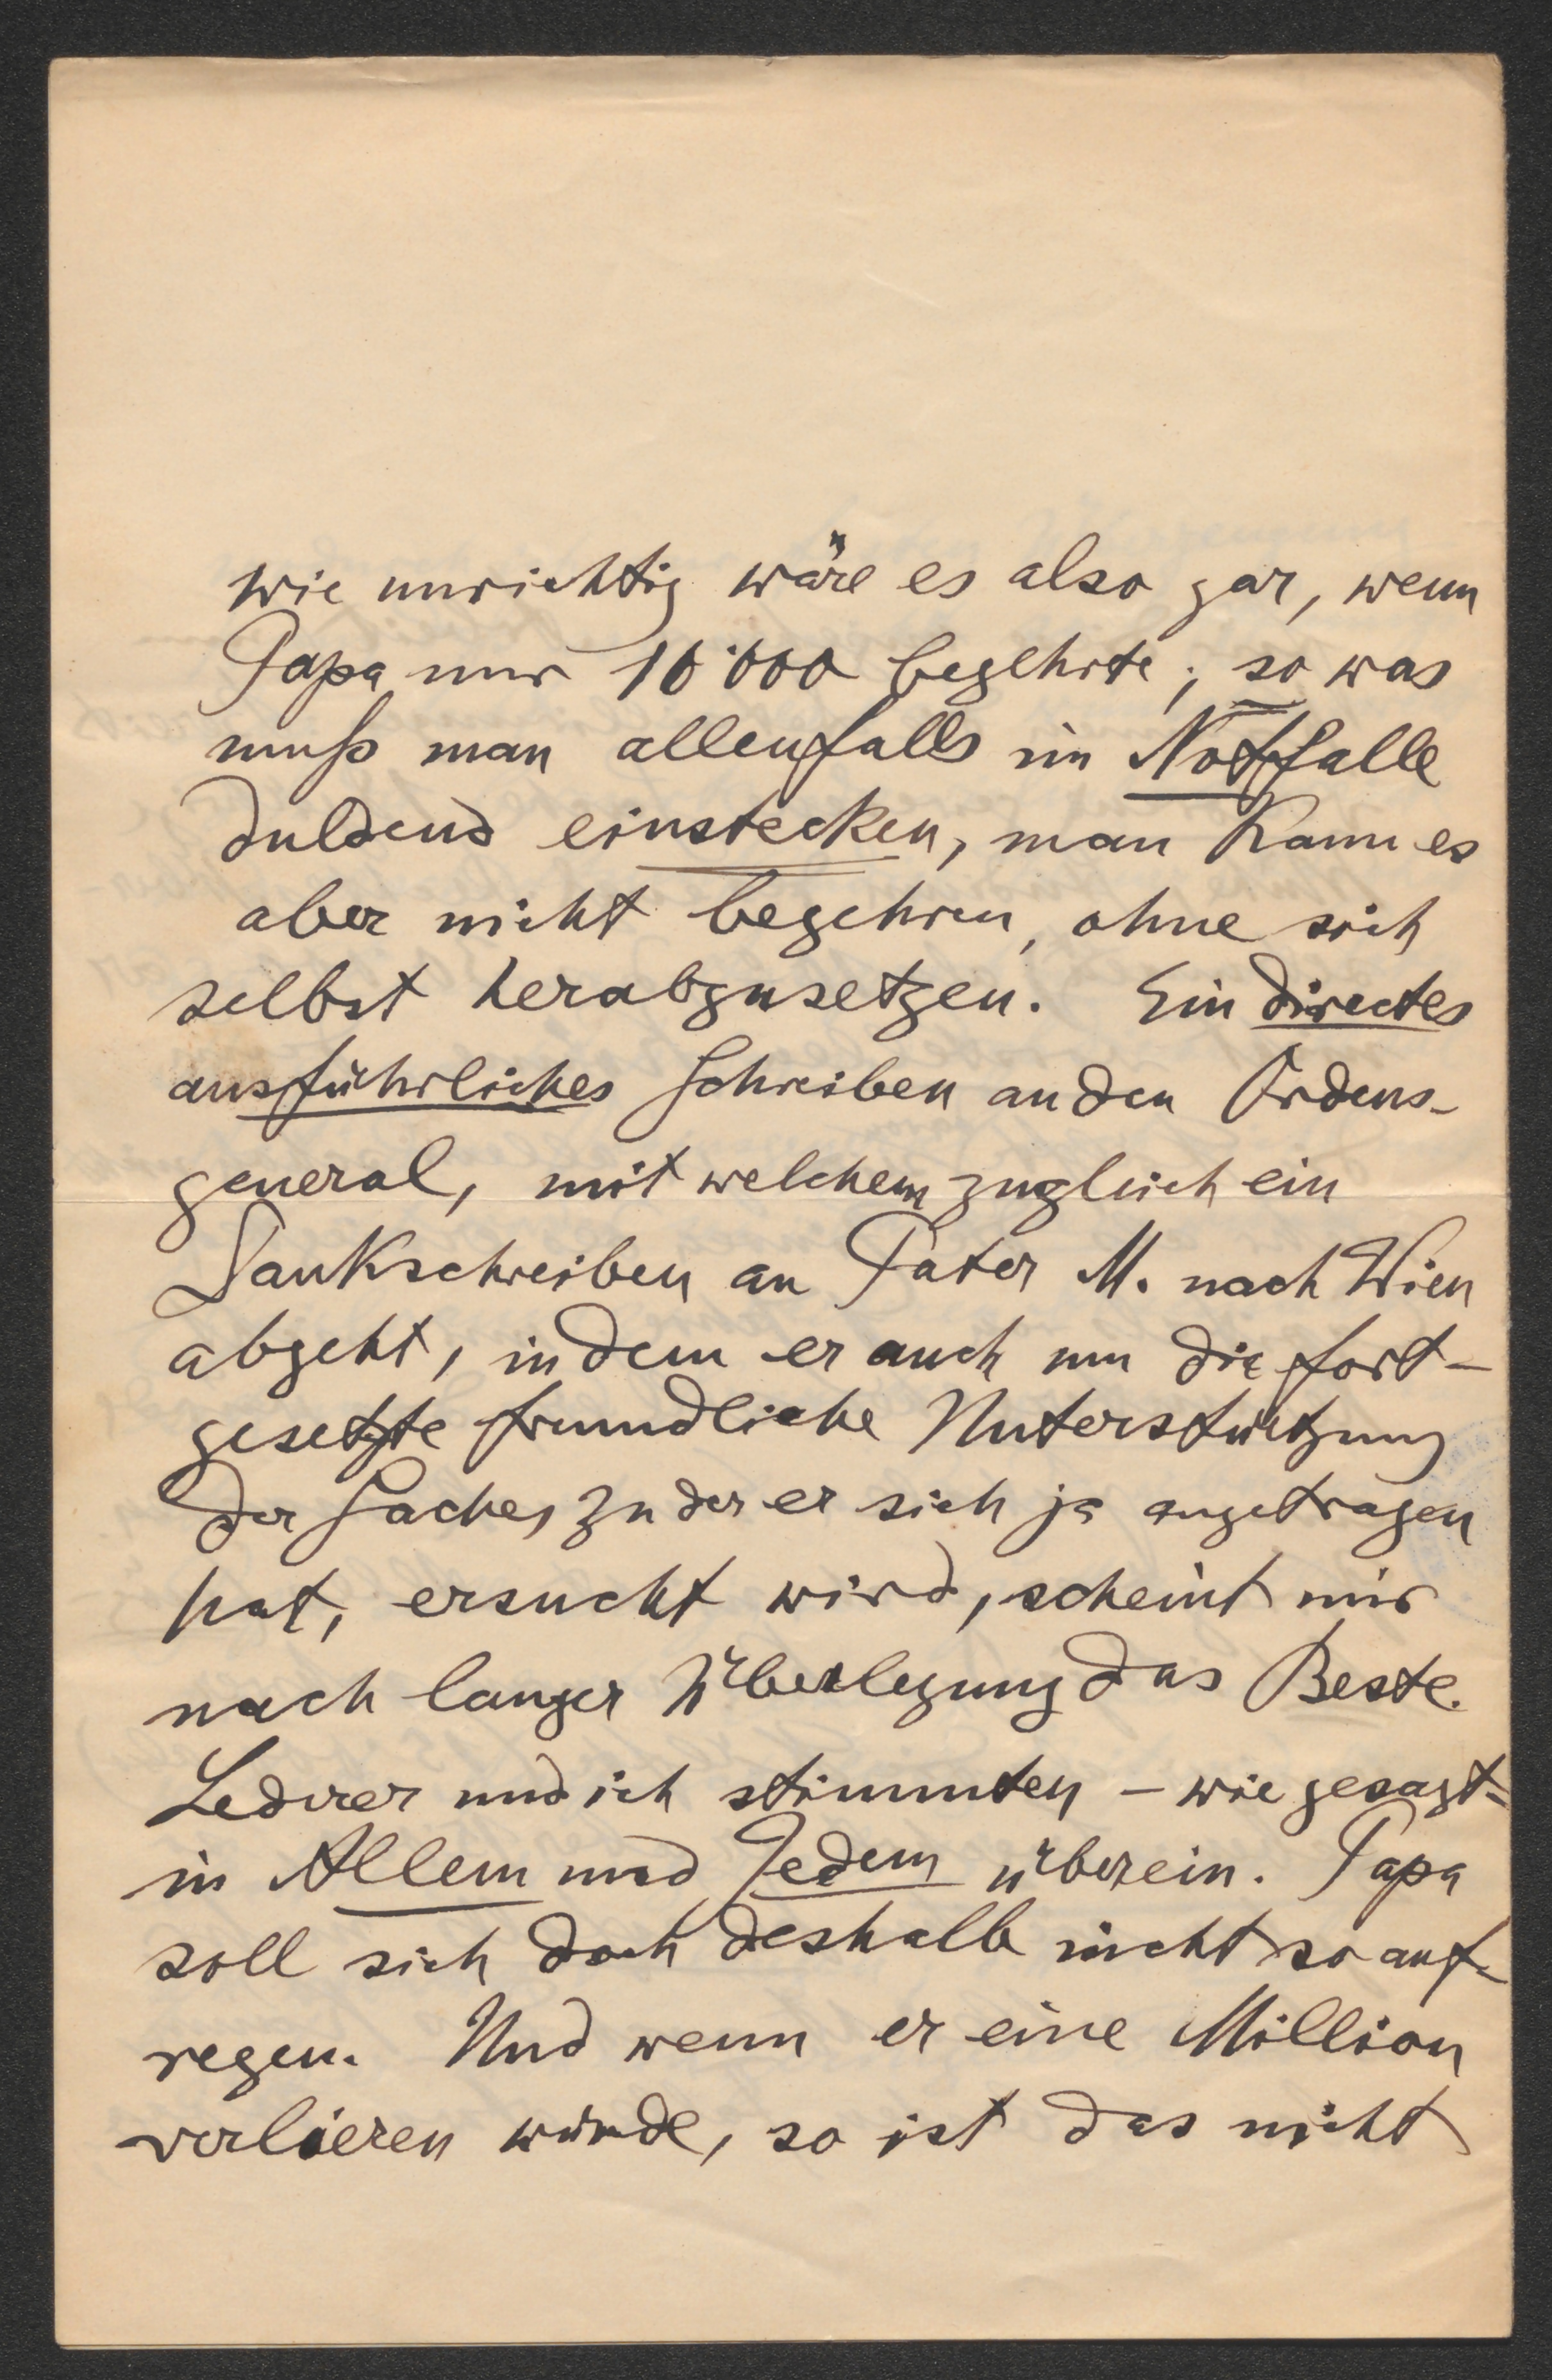 wie unrichtig wäre es also gar, wenn
Papa nur 10'000 begehrte; so was
muß man allenfalls im Notfalle
duldend einstecken, man kann es
aber nicht begehren, ohne sich
selbst herabzusetzen. Ein directes
ausführliches Schreiben an den Ordens-
general, mit welchem zugleich ein
Dankschreiben an Pater M. nach Wien
abgeht, in dem er auch um die fort-
gesetzte freundliche Unterstützung
der Sache, zu der er sich ja angetragen
hat, ersucht wird, scheint mir
nach langer Überlegung das Beste.
Lederer und ich stimmten - wie gesagt -
in Allem und Jedem überein. Papa
soll sich doch deshalb nicht so auf-
regen. Und wenn er eine Million
verlieren würde, so ist das nicht